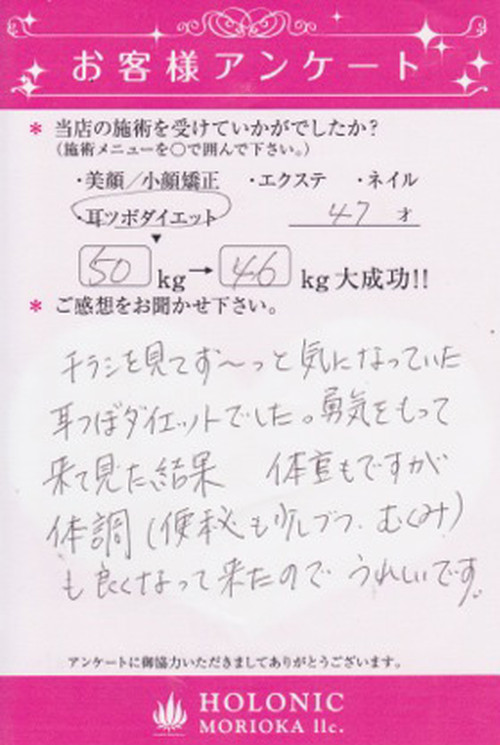 お客様アンケート
* 当店の施術を受けていかがでしたか?
(施術メニューを〇で囲んで下さい。)
・美顔/小顔矯正 ・エクステ ・ネイル
・耳ツボダイエット 47 才
▼
50 kg → 46 kg 大成功!!
* ご感想をお聞かせ下さい。
チラシを見てず〜っと気になっていた
耳つぼダイエットでした。勇気をもって
来て見た結果 体重もですが
体調(便秘も少しづつ、むくみ)
も良くなって来たので うれしいです。
アンケートに御協力いただきましてありがとうございます。
HOLONIC
MORIOKA llc.